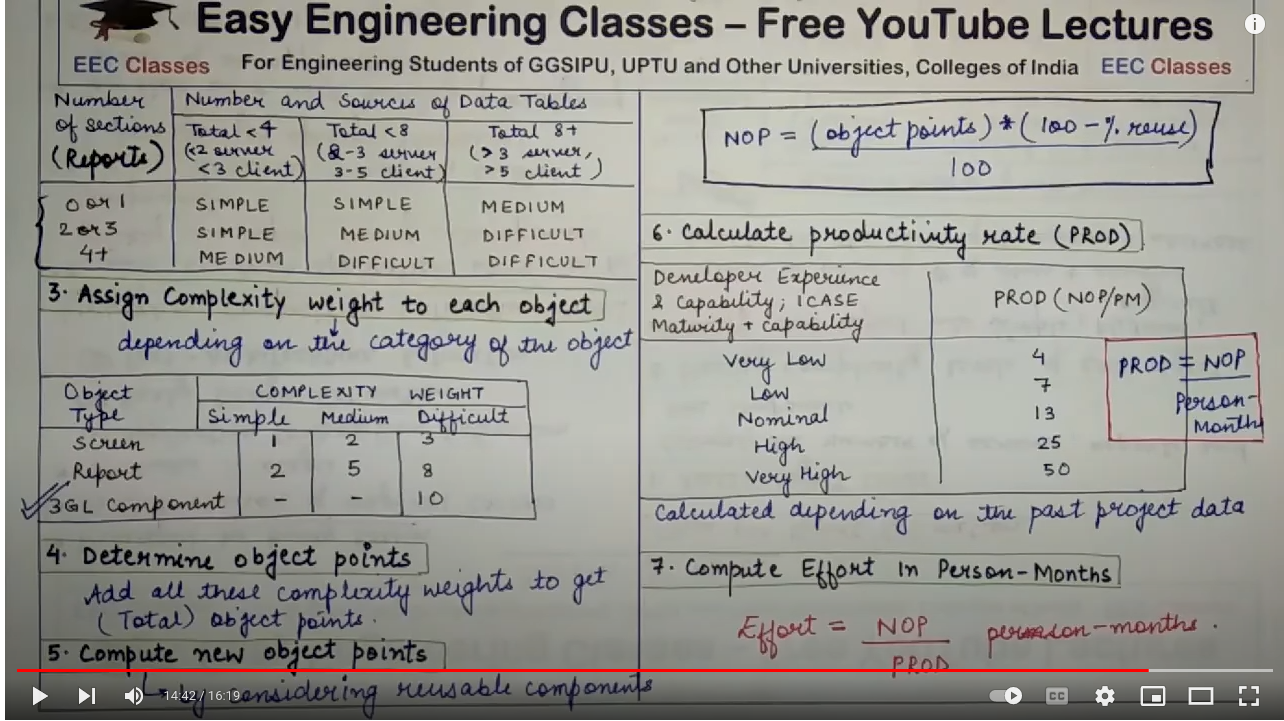 Easy Engineering Classes – Free YouTube Lectures
EEC Classes For Engineering Students of GGSIPU, UPTU and Other Universities, Colleges of India EEC Classes
Number of sections (Reports)
Number and Sources of Data Tables
Total <4 (<2 server <3 client)
Total <8 (2-3 server 3-5 client)
Total 8+ (>3 server, >5 client)
0 or 1 SIMPLE SIMPLE MEDIUM
2 or 3 SIMPLE MEDIUM DIFFICULT
4+ MEDIUM DIFFICULT DIFFICULT
3. Assign Complexity weight to each object
depending on the category of the object
Object Type
COMPLEXITY WEIGHT
Simple Medium Difficult
Screen 1 2 3
Report 2 5 8
3GL Component - - 10
4. Determine object points
Add all these complexity weights to get
(Total) object points.
5. Compute new object points
by considering reusable components
NOP = (object points) * (100 - % reuse)
100
6. Calculate productivity rate (PROD)
Developer Experience
& Capability; ICASE
Maturity + capability
PROD (NOP/PM)
Very Low 4
Low 7
Nominal 13
High 25
Very High 50
PROD = NOP
Person-
Months
Calculated depending on the past project data
7. Compute Effort In Person-Months
Effort = NOP person-months.
PROD
14:42 / 16:19
CC